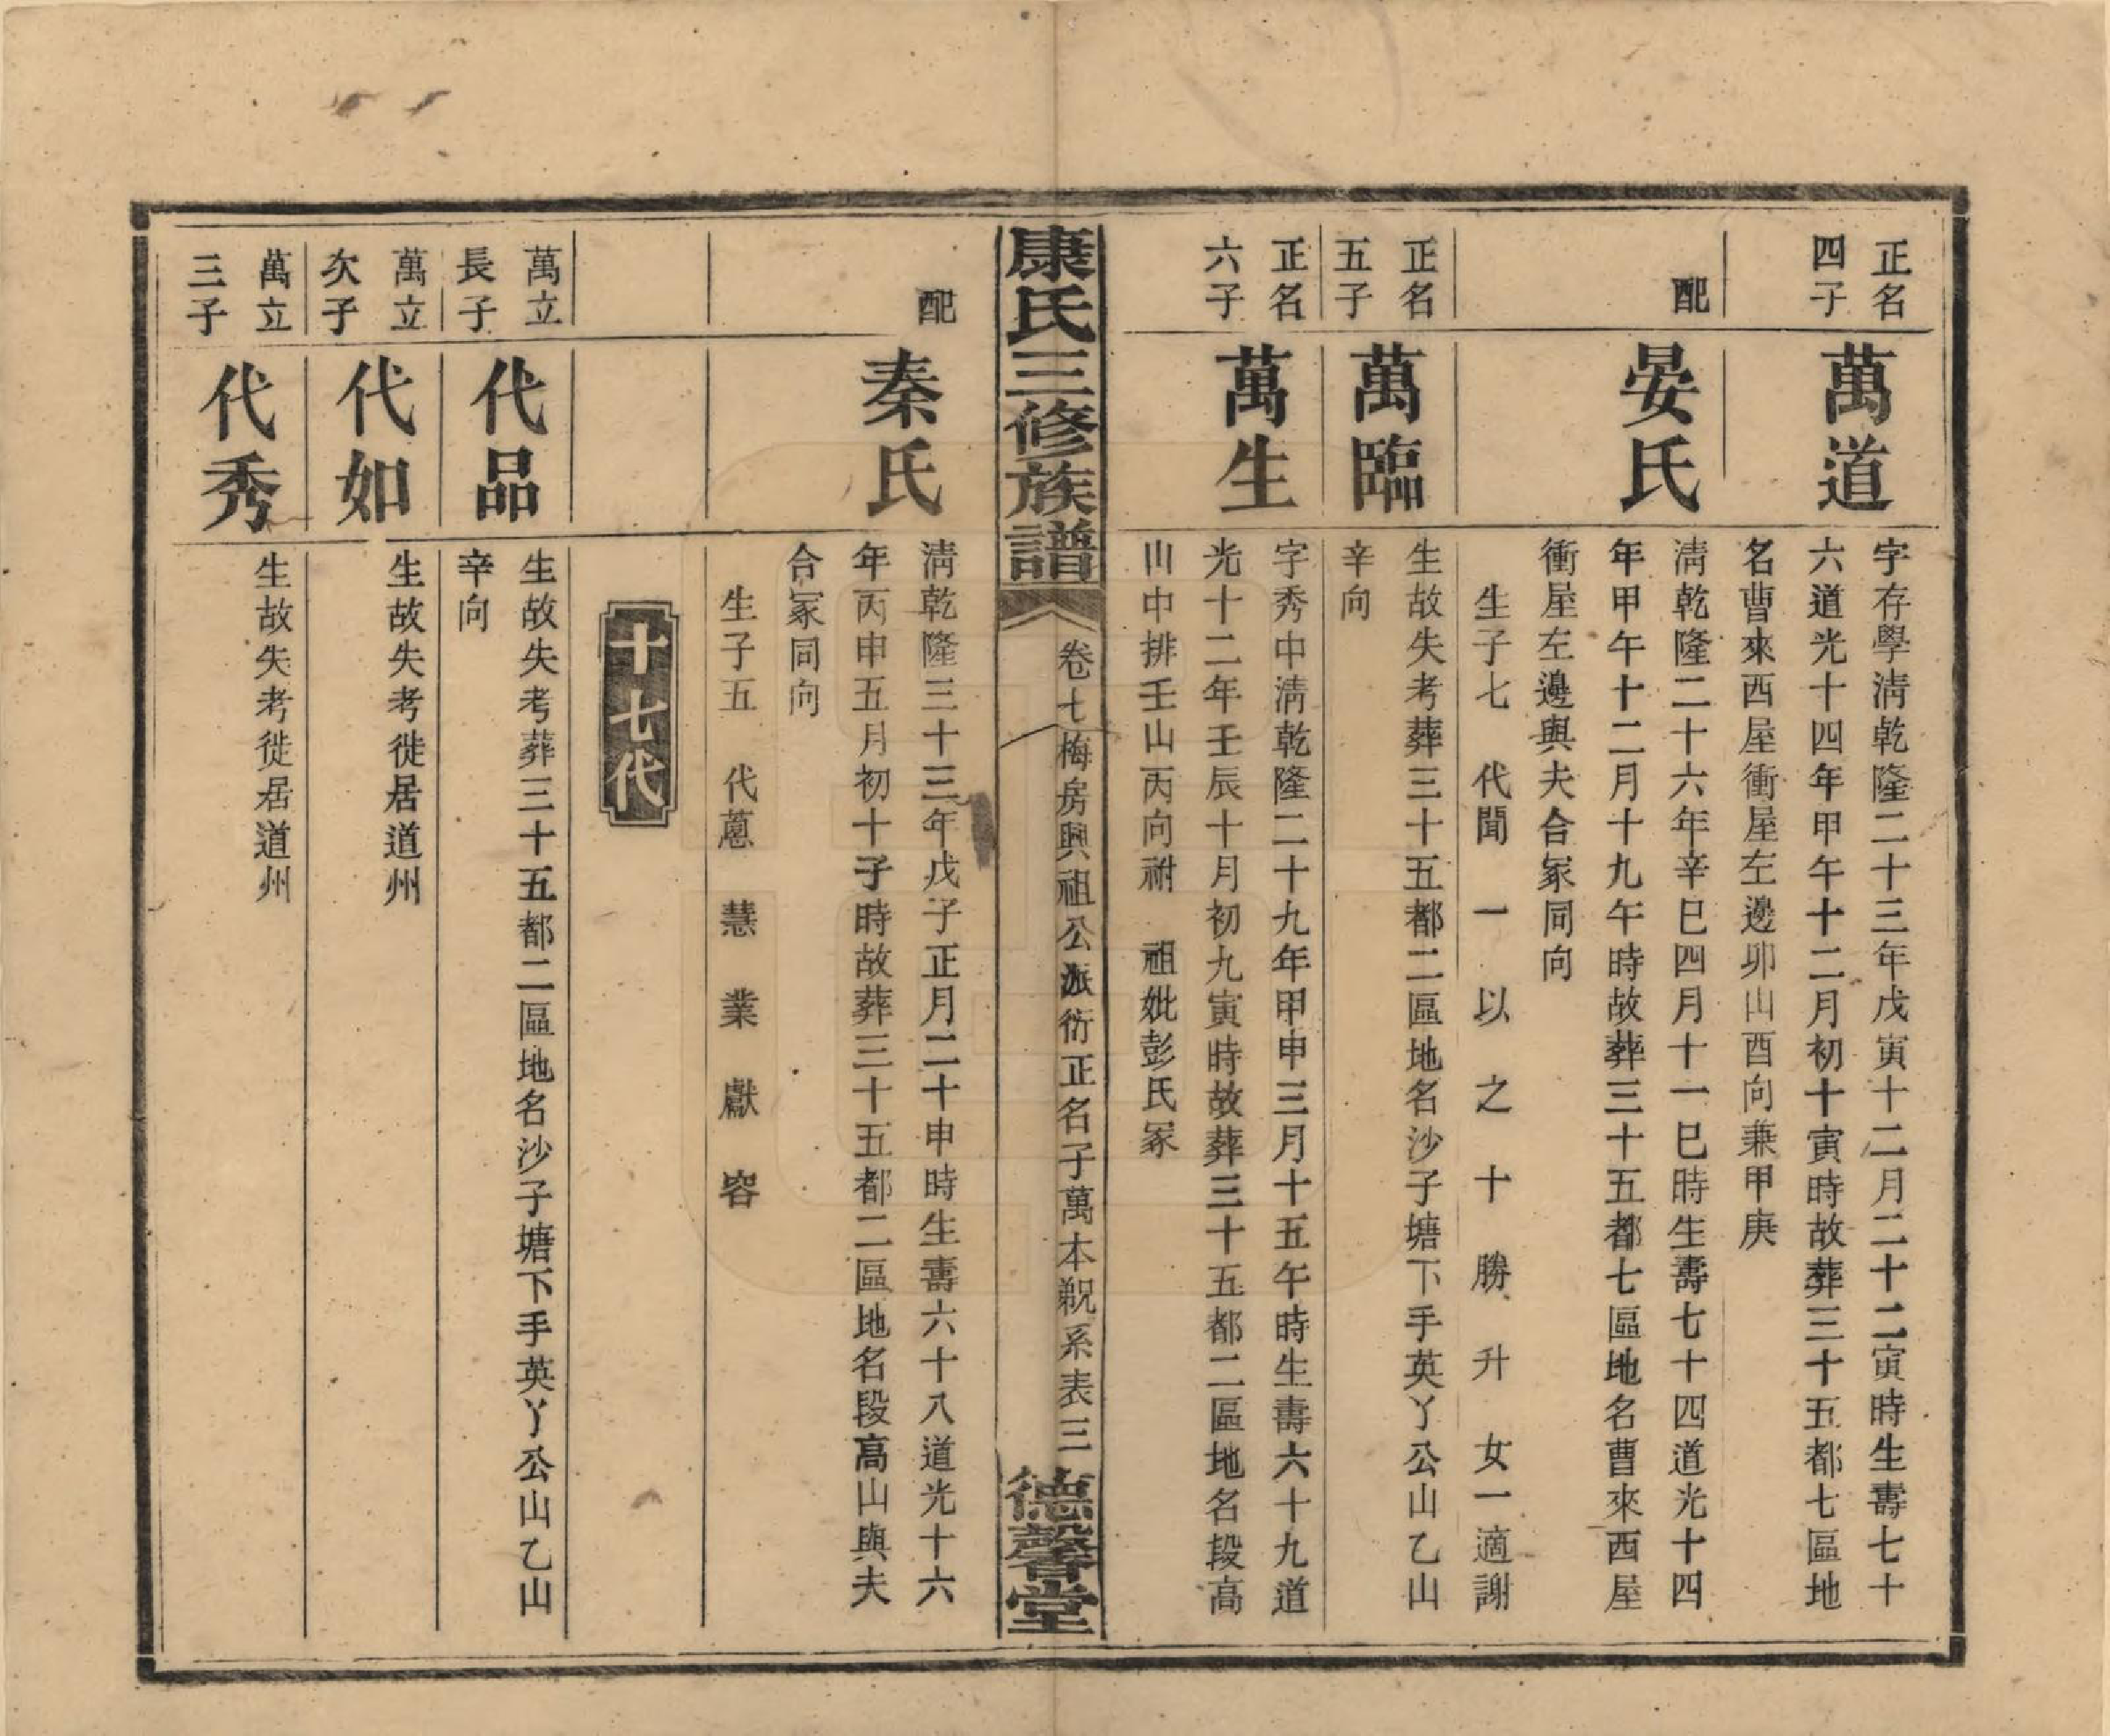 正名
四子
萬道
字存學淸乾隆二十三年戊寅十二月二十二寅時生壽七十
六道光十四年甲午十二月初十寅時故葬三十五都七區地
名曹來西屋衝屋左邊卯山酉向兼甲庚
配
晏氏
淸乾隆二十六年辛巳四月十一巳時生壽七十四道光十四
年甲午十二月十九午時故葬三十五都七區地名曹來西屋
衝屋左邊與夫合冢同向
生子七 代聞 一 以 之 十 勝 升 女一適謝
正名
五子
萬臨
生故失考葬三十五都二區地名沙子塘下手英丫公山乙山
辛向
正名
六子
萬生
字秀中淸乾隆二十九年甲申三月十五午時生壽六十九道
光十二年壬辰十月初九寅時故葬三十五都二區地名段高
山中排壬山丙向祔 祖妣彭氏冢
康氏三修族譜
卷七梅房興祖公派衍正名子萬本覯系表三
德馨堂
配
秦氏
淸乾隆三十三年戊子正月二十申時生壽六十八道光十六
年丙申五月初十子時故葬三十五都二區地名段高山與夫
合冢同向
生子五 代蒽 慧 業 獻 容
十七代
萬立
長子
代品
生故失考葬三十五都二區地名沙子塘下手英丫公山乙山
辛向
萬立
次子
代如
生故失考徙居道州
萬立
三子
代秀
生故失考徙居道州